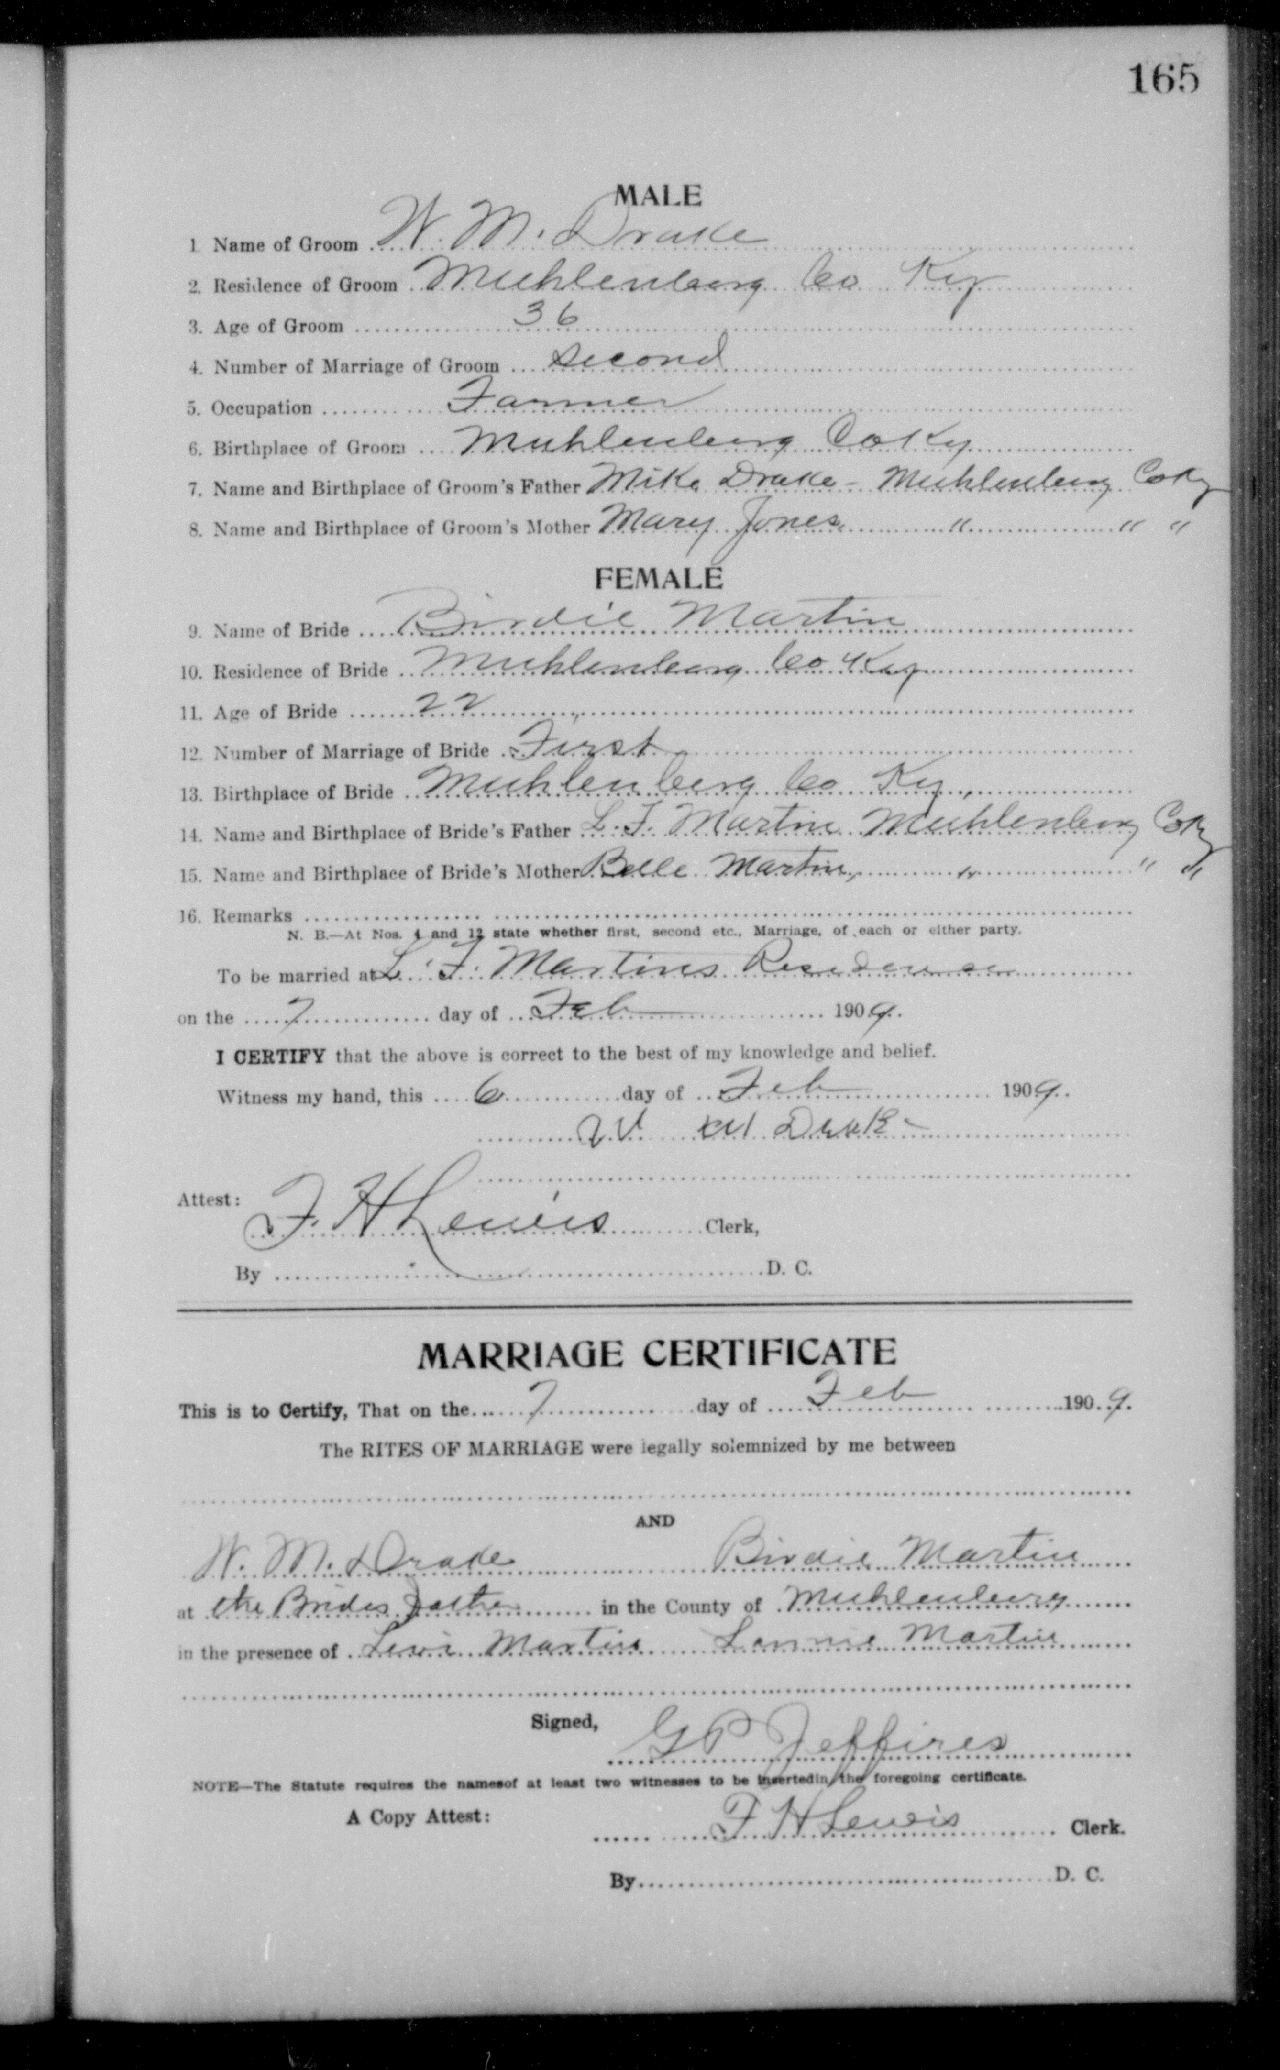 165
MALE
1 Name of Groom W. M. Drake
2. Residence of Groom Muhlenberg Co Ky
3. Age of Groom 36
4. Number of Marriage of Groom second
5. Occupation Farmer
6. Birthplace of Groom Muhlenberg Co Ky
7. Name and Birthplace of Groom's Father Mike Drake - Muhlenberg Co Ky
8. Name and Birthplace of Groom's Mother Mary Jones " " "
FEMALE
9. Name of Bride Birdie Martin
10. Residence of Bride Muhlenberg Co Ky
11. Age of Bride 22
12. Number of Marriage of Bride First
13. Birthplace of Bride Muhlenberg Co Ky,
14. Name and Birthplace of Bride's Father L. F. Martin Muhlenberg Co Ky
15. Name and Birthplace of Bride's Mother Belle Martin, " " "
16. Remarks
N. B.—At Nos. 4 and 12 state whether first, second etc., Marriage, of each or either party.
To be married at L. F. Martins Residence
on the 7 day of Feb 1909.
I CERTIFY that the above is correct to the best of my knowledge and belief.
Witness my hand, this 6 day of Feb 1909.
W M Drake
Attest:
F. H Lewis Clerk,
By D. C.
MARRIAGE CERTIFICATE
This is to Certify, That on the 7 day of Feb 1909.
The RITES OF MARRIAGE were legally solemnized by me between
AND
W. M. Drake Birdie Martin
at the Brides Father in the County of Muhlenberg
in the presence of Levi Martin Lannie Martin
Signed, G P Jeffires
NOTE—The Statute requires the namesof at least two witnesses to be insertedin the foregoing certificate.
A Copy Attest: F H Lewis Clerk.
By D. C.